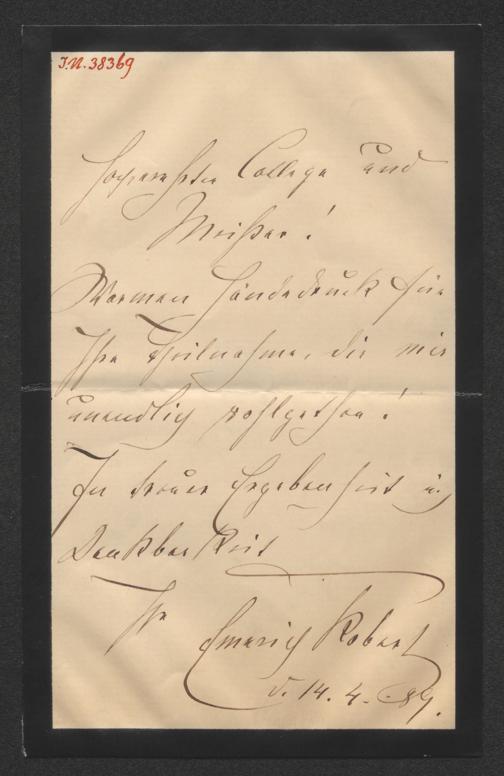 I.N. 38369
Hochverehrter College und
Meister!
Warmen Händedruck für
Ihre Theilnahme, die mir
unendlich wohlgethan!
In treuer Ergebenheit u.
Dankbarkeit
Ihr
Emerich Robert
d. 14. 4. 89.